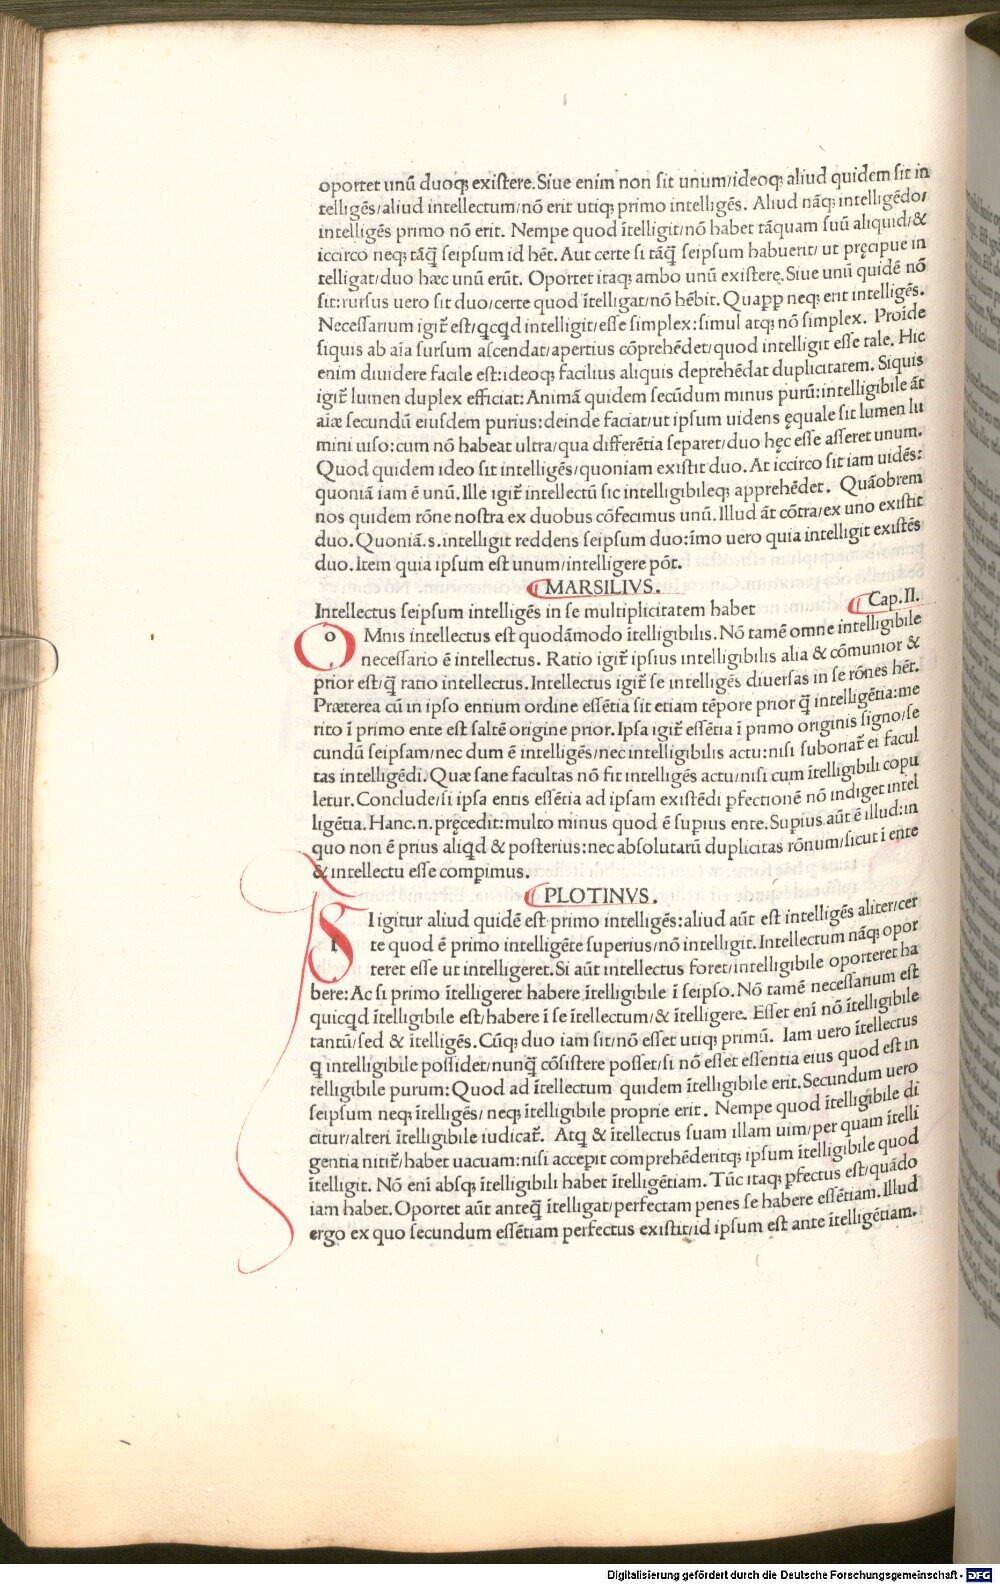 oportet unū duoq; exiſtere. Siue enim non ſit unum/ideoq; aliud quidem ſit in
telligēs/aliud intellectum/nō erit utiq; primo intelligēs. Aliud nāq; intelligēdo/
intelligēs primo nō erit. Nempe quod ītelligit/nō habet tāquam ſuū aliquid/&
iccirco neq; tāq̄ ſeipſum id hēt. Aut certe ſi tāq̄ ſeipſum habuerit/ ut pręcipue in
telligat/duo hæc unū erūt. Oportet itaq; ambo unū exiſtere. Siue unū quidē nō
ſit: rurſus uero ſit duo/certe quod ītelligat/nō hēbit. Quaꝓꝓ neq; erit intelligēs.
Neceſſarium igit̄ eſt/qcqd intelligit/eſſe ſimplex: ſimul atq; nō ſimplex. Proīde
ſiquis ab aīa ſurſum aſcendat/apertius cōprehēdet/quod intelligit eſſe tale. Hic
enim diuidere facile eſt: ideoq; facilius aliquis deprehēdat duplicitatem. Siquis
igit̄ lumen duplex efficiat: Animā quidem ſecūdum minus purū: intelligibile āt
aiæ ſecundū eiuſdem purius: deinde faciat/ut ipſum uidens ęquale ſit lumen lu
mini uiſo: cum nō habeat ultra/qua differētia ſeparet/duo hęc eſſe aſſeret unum.
Quod quidem ideo ſit intelligēs/quoniam exiſtit duo. At iccirco ſit iam uidēs:
quoniā iam ē unū. Ille igit̄ intellectū ſic intelligibileq; apprehēdet. Quāobrem
nos quidem rōne noſtra ex duobus cōfecimus unū. Illud āt cōtra/ex uno exiſtit
duo. Quoniā. s. intelligit reddens ſeipſum duo: īmo uero quia intelligit exiſtēs
duo. Item quia ipſum eſt unum/intelligere pōt.
MARSILIVS.
Intellectus ſeipſum intelligēs in ſe multiplicitatem habet
Cap. II.
O Mnis intellectus eſt quodāmodo ītelligibilis. Nō tamē omne intelligibile
neceſſario ē intellectus. Ratio igit̄ ipſius intelligibilis alia & cōmunior &
prior eſt/q̄ ratio intellectus. Intellectus igit̄ ſe intelligēs diuerſas in ſe rōnes hēt.
Præterea cū in ipſo entium ordine eſſētia ſit etiam tēpore prior q̄ intelligētia: me
rito ī primo ente eſt ſaltē origine prior. Ipſa igit̄ eſſētia ī primo originis ſigno/ſe
cundū ſeipſam/nec dum ē intelligēs/nec intelligibilis actu: niſi ſuboriat̄ ei facul
tas intelligēdi. Quæ ſane facultas nō fit intelligēs actu/niſi cum ītelligibili copu
letur. Conclude/ſi ipſa entis eſſētia ad ipſam exiſtēdi ꝑfectionē nō indiget intel
ligētia. Hanc. n. pręcedit: multo minus quod ē ſuꝑius ente. Suꝑius aūt ē illud: in
quo non ē prius aliqd & poſterius: nec abſolutarū duplicitas rōnum/ſicut ī ente
& intellectu eſſe comꝑimus.
PLOTINVS.
S I igitur aliud quidē eſt primo intelligēs: aliud aūt eſt intelligēs aliter/cer
te quod ē primo intelligēte ſuperius/nō intelligit. Intellectum nāq; opor
teret eſſe ut intelligeret. Si aūt intellectus foret/intelligibile oporteret ha
bere: Ac ſi primo ītelligeret habere ītelligibile ī ſeipſo. Nō tamē neceſſarium eſt
quicqd ītelligibile eſt/habere ī ſe ītellectum/& ītelligere. Eſſet enī nō ītelligibile
tantū/ſed & ītelligēs. Cūq; duo iam ſit/nō eſſet utiq; primū. Iam uero ītellectus
q intelligibile poſſidet/nunq̄ cōſiſtere poſſet/ſi nō eſſet eſſentia eius quod eſt in
telligibile purum: Quod ad ītellectum quidem ītelligibile erit. Secundum uero
ſeipſum neq; ītelligēs/ neq; ītelligibile proprie erit. Nempe quod ītelligibile di
citur/alteri ītelligibile iudicat̄. Atq; & ītellectus ſuam illam uim/per quam ītelli
gentia nitit̄/habet uacuam: niſi acceꝑit comprehēderitq; ipſum ītelligibile quod
ītelligit. Nō enī abſq; ītelligibili habet ītelligētiam. Tūc itaq; ꝑfectus eſt/quādo
iam habet. Oportet aūt anteq̄ ītelligat/perfectam penes ſe habere eſſētiam. Illud
ergo ex quo ſecundum eſſētiam perfectus exiſtit/id ipſum eſt ante ītelligētiam.
Digitalisierung gefördert durch die Deutsche Forschungsgemeinschaft - DFG